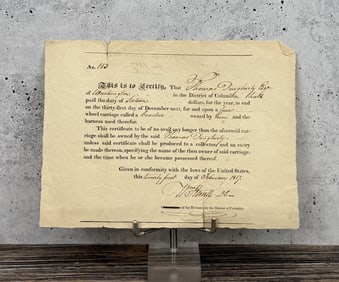 No. 113
This is to Certify, That Thomas Dougherty Esqr
of Washington in the District of Columbia hath
paid the duty of seven dollars, for the year, to end
on the thirty-first day of December next, for and upon a four
wheel carriage called a owned by him and the
harness used therefor.
This certificate to be of no avail any longer than the aforesaid car-
riage shall be owned by the said Thomas Dougherty
unless said certificate shall be produced to a collector, and an entry
be made thereon, specifying the name of the then owner of said carriage,
and the time when he or she became possessed thereof.
Given in conformity with the laws of the United States,
this twenty first day of February 1817.
of the Revenue for the District of Columbia.